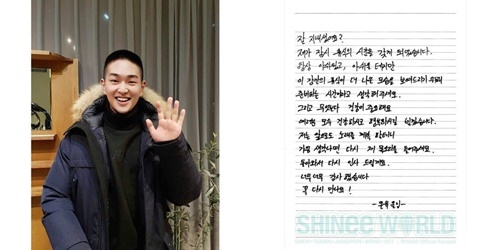 잘 지내셨나요?
제가 잠시 휴식의 시간을 갖게 되었습니다.
항상 아쉬웠고, 아쉬울 테지만
이 잠깐의 휴식이 더 나은 모습을 보여드리기 위해
준비하는 시간이라고 생각해주세요.
그리고 무엇보다 건강이 중요해요
여러분 모두 건강하시고 행복하시길 빌겠습니다.
저는 앞으로도 노래를 계속 할테니
가끔 생각나면 다시 제 목소리를 들어주세요.
돌아와서 다시 인사 드릴게요.
너무너무 감사 했습니다
꼭 다시 만나요!
- 온유 올림 -
SHINee WORLD